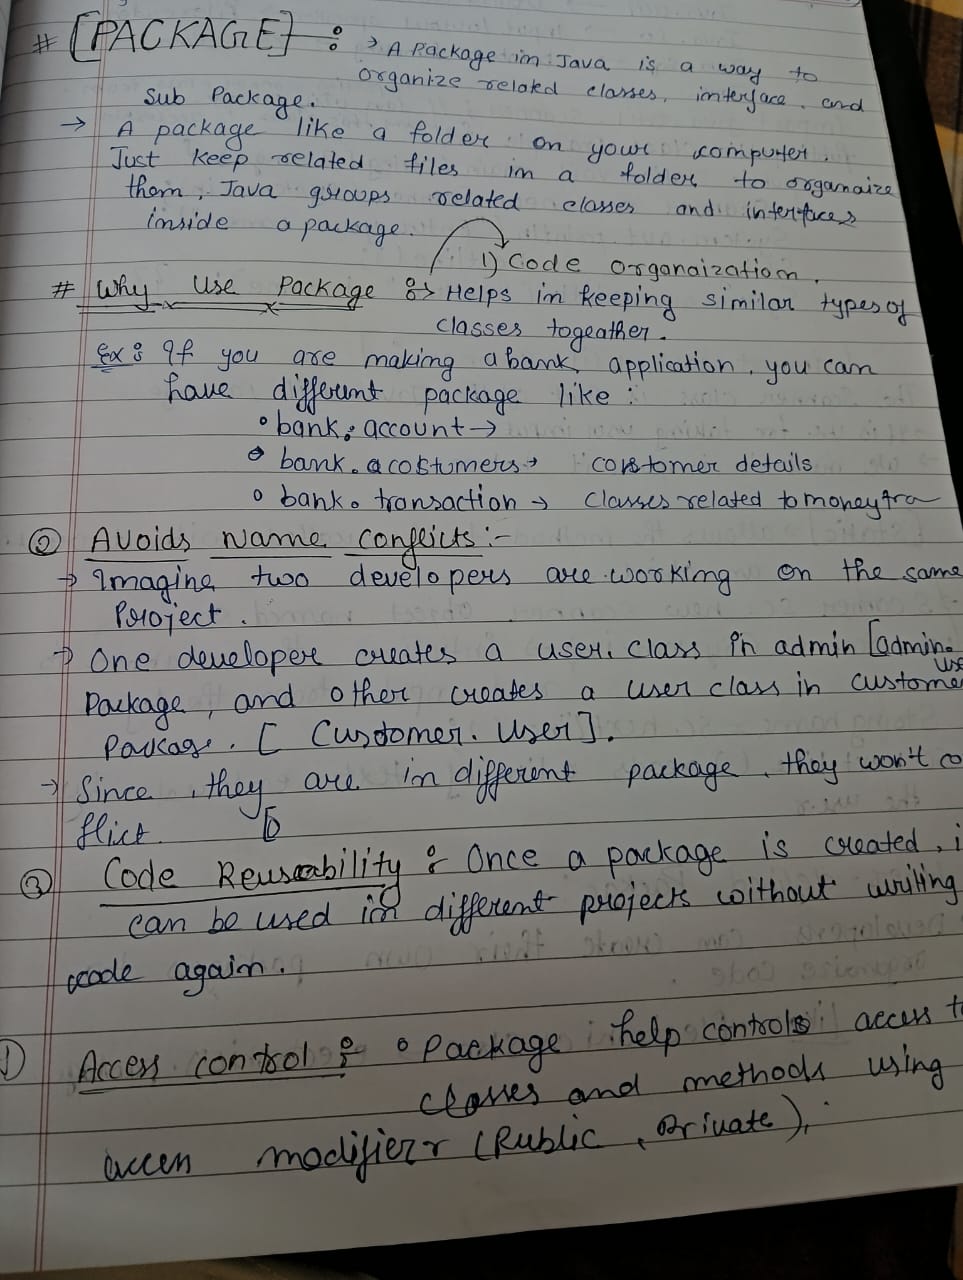 # [PACKAGE] : → A Package in Java is a way to
organize related classes, interface, and
Sub Package.
→ A package like a folder on your computer.
Just keep related files in a folder to organaize
them, Java groups related classes and interfaces
inside a package.
1) Code organaization.
# Why Use Package :→ Helps in keeping similar types of
classes togeather.
Ex : If you are making a bank application, you can
have different package like :
• bank. account →
• bank. acostumers → costomer details
• bank. transaction → classes related to money tra
② Avoids Name Conflicts :-
→ Imagine two developers are working on the same
Project.
→ One developer creates a user. class in admin [admin.
use
Package, and other creates a user class in custome
Package. [ Customer. User ].
→ Since, they are in different package, they won't co
flict.
③ Code Reuseability : Once a package is created, i
can be used in different projects without writing
code again.
Access control : • Package help controls access t
classes and methods using
access modifierr (Public, Private),